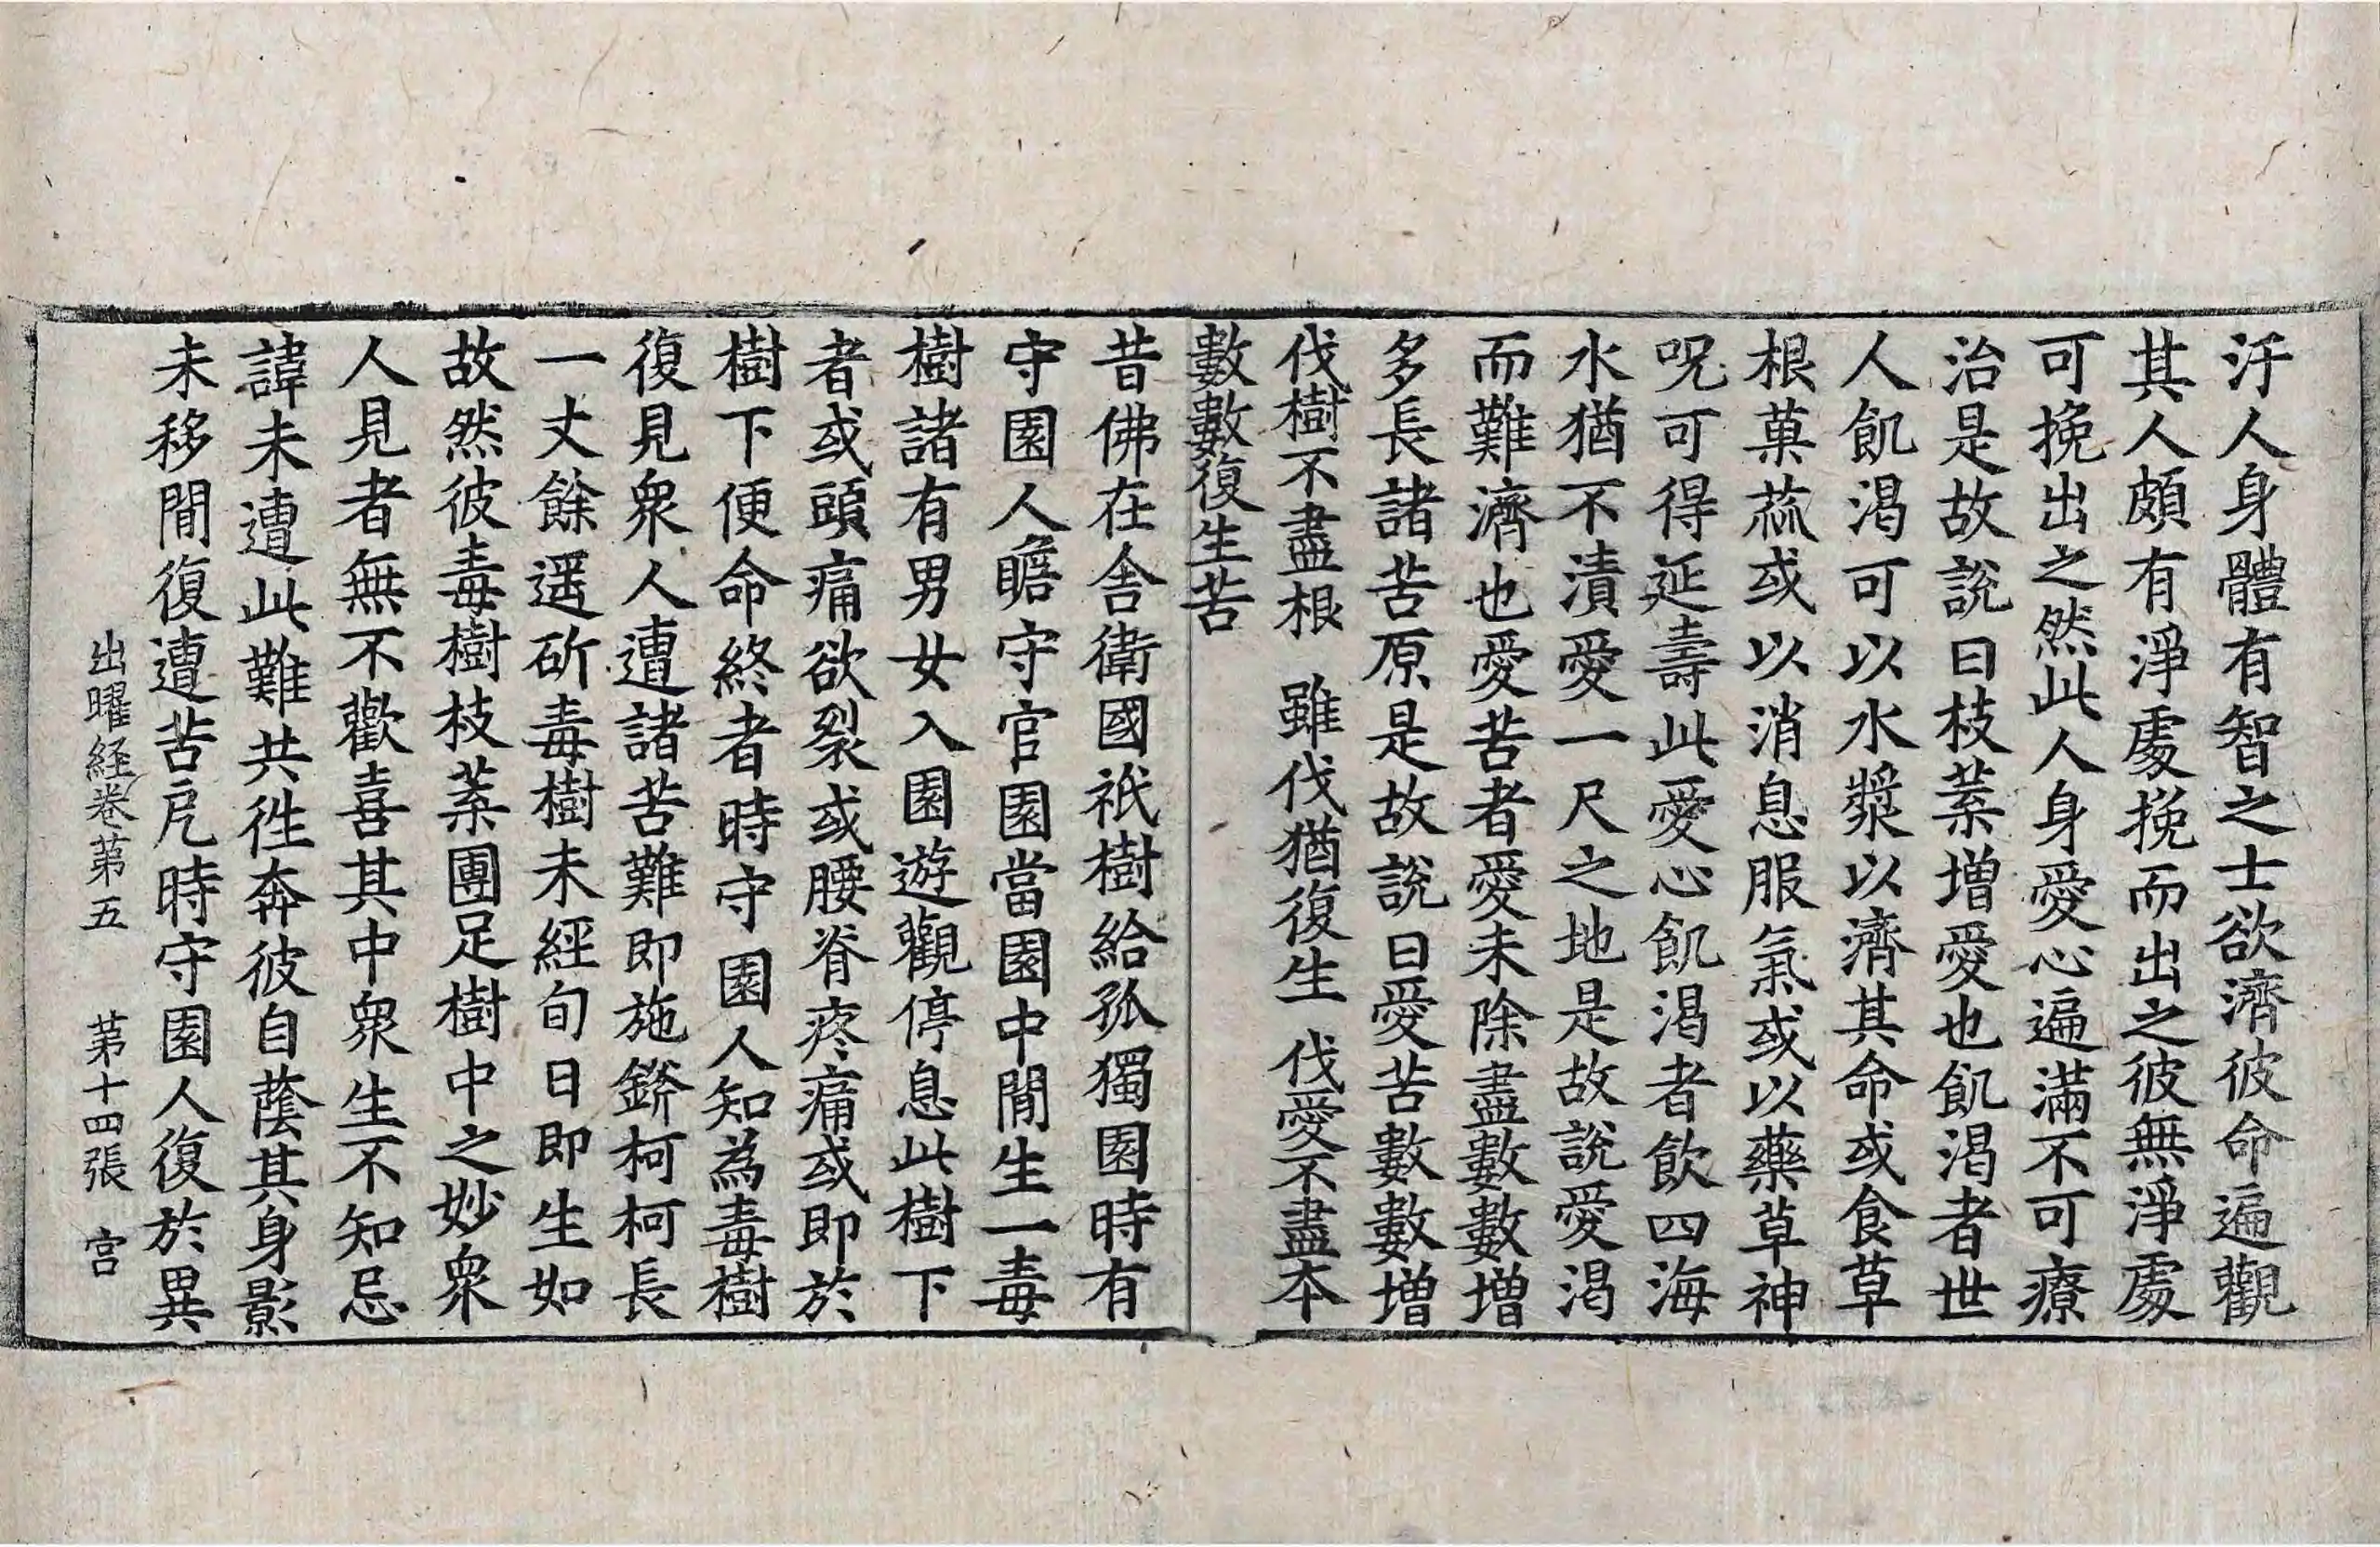 汙人身體有智之士欲濟彼命遍觀
其人頗有淨處挽而出之彼無淨處
可挽出之然此人身愛心遍滿不可療
治是故說曰枝葉增愛也飢渴者世
人飢渴可以水漿以濟其命或食草
根菓蓏或以消息服氣或以藥草神
呪可得延壽此愛心飢渴者飲四海
水猶不漬愛一尺之地是故說愛渴
而難濟也愛苦者愛未除盡數數增
多長諸苦原是故說曰愛苦數數增
伐樹不盡根 雖伐猶復生 伐愛不盡本
數數復生苦
昔佛在舍衛國祇樹給孤獨園時有
守園人瞻守官園當園中閒生一毒
樹諸有男女入園遊觀停息此樹下
者或頭痛欲裂或腰脊疼痛或即於
樹下便命終者時守園人知為毒樹
復見衆人遭諸苦難即施錛柯柯長
一丈餘遥斫毒樹未經旬日即生如
故然彼毒樹枝葉團足樹中之妙衆
人見者無不歡喜其中衆生不知忌
諱未遭此難共徃奔彼自蔭其身影
未移閒復遭苦戹時守園人復於異
出曜経卷第五 第十四張 宮